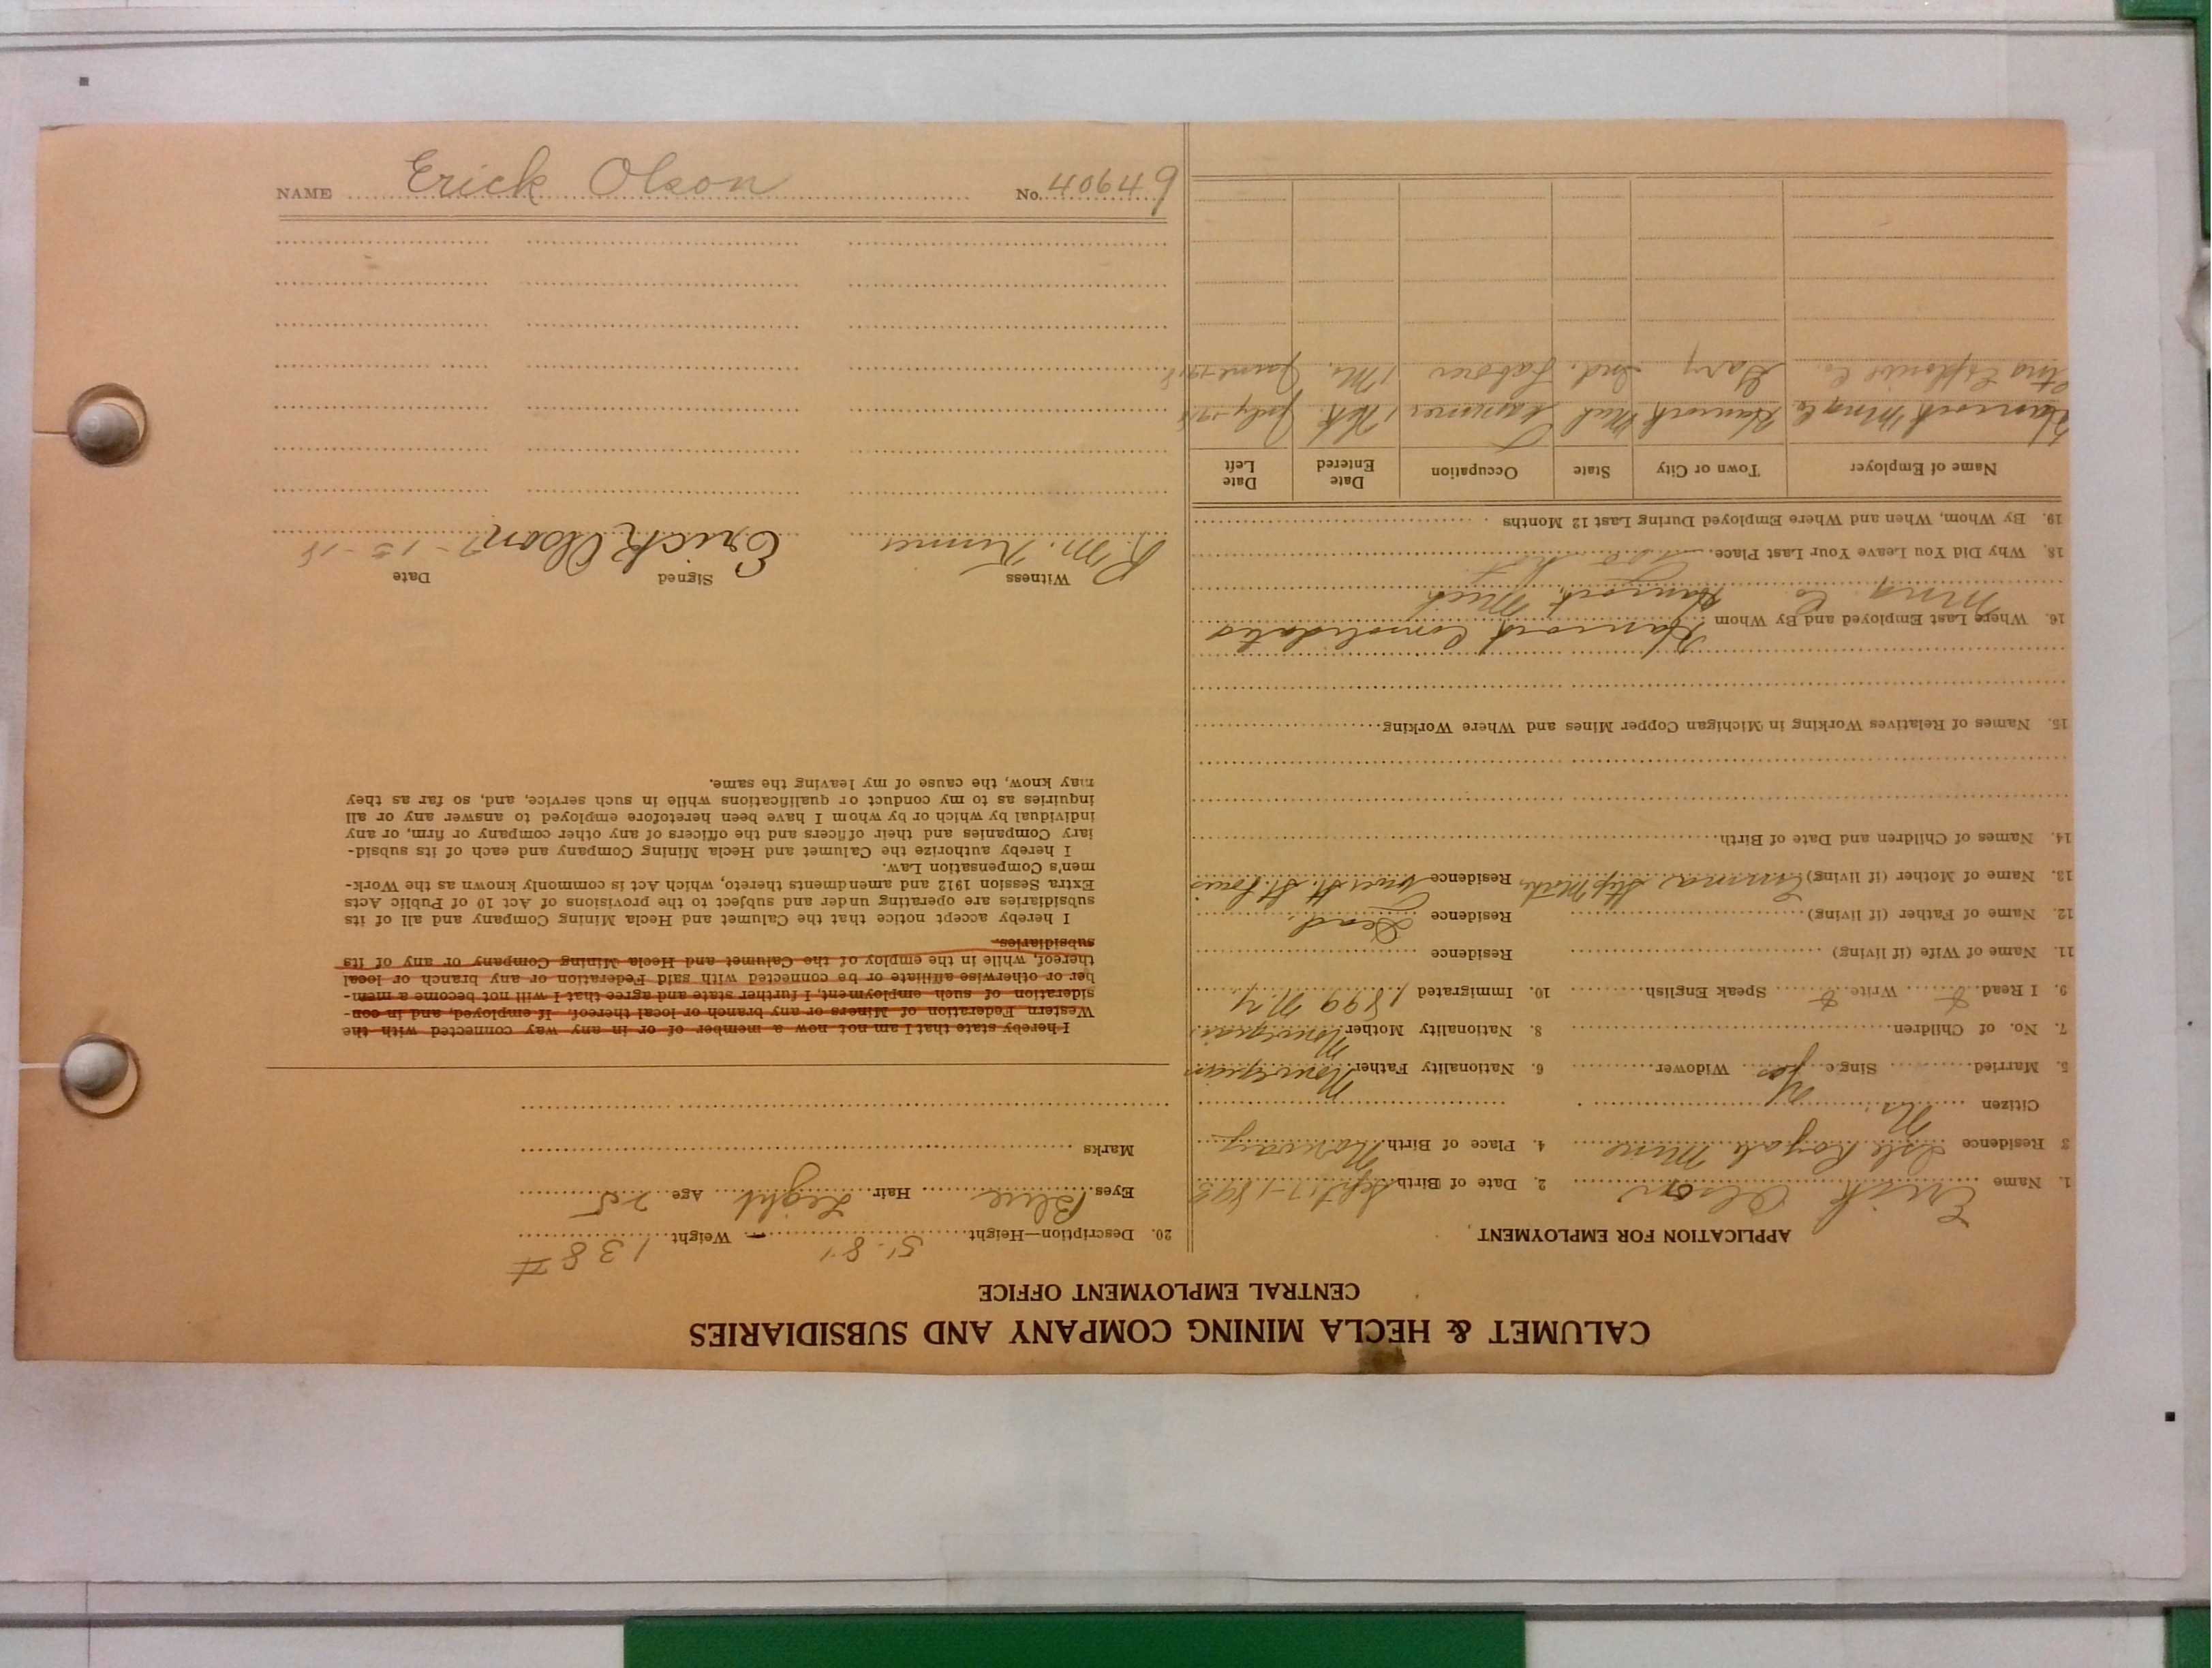 CALUMET & HECLA MINING COMPANY AND SUBSIDIARIES
CENTRAL EMPLOYMENT OFFICE
APPLICATION FOR EMPLOYMENT
1. Name Erick Olson 2. Date of Birth Sept 17-1893
3 Residence Isle Royale Mine 4. Place of Birth Norway
Citizen No.
5. Married Single yes Widower 6. Nationality Father Norwegian
7. No. of Children 8. Nationality Mother Norwegian
9. I Read Write Speak English 10. Immigrated 1899 N.Y
11. Name of Wife (if living) Residence
12. Name of Father (if living) Residence Dead
13. Name of Mother (if living) Emma Step Moth. Residence St. Louis
14. Names of Children and Date of Birth
15. Names of Relatives Working in Michigan Copper Mines and Where Working
16. Where Last Employed and By Whom Hancock Consolidated
Mng Co. Hancock, Mich
18. Why Did You Leave Your Last Place. Too hot
19. By Whom, When and Where Employed During Last 12 Months
Name of Employer Town or City State Occupation Date Entered Date Left
Hancock Mng Co Hancock Mich Trammer 1 Wk. July-1918
Etna Explosive Co. Gary Ind. Laborer 1 Mo. June-1918
20. Description—Height 5'-8" Weight 138 #
Eyes Blue Hair Light Age 25
Marks
I hereby state that I am not now a member of or in any way connected with the
Western Federation of Miners or any branch or local thereof. If employed, and in con-
sideration of such employment, I further state and agree that I will not become a mem-
ber or otherwise affiliate or be connected with said Federation or any branch or local
thereof, while in the employ of the Calumet and Hecla Mining Company or any of its
subsidiaries.
I hereby accept notice that the Calumet and Hecla Mining Company and all of its
subsidiaries are operating under and subject to the provisions of Act 10 of Public Acts
Extra Session 1912 and amendments thereto, which Act is commonly known as the Work-
men's Compensation Law.
I hereby authorize the Calumet and Hecla Mining Company and each of its subsid-
iary Companies and their officers and the officers of any other company or firm, or any
individual by which or by whom I have been heretofore employed to answer any or all
inquiries as to my conduct or qualifications while in such service, and, so far as they
may know, the cause of my leaving the same.
Witness Signed Date
R. M. Erick Olson 7-15-18
NAME Erick Olson No. 40649